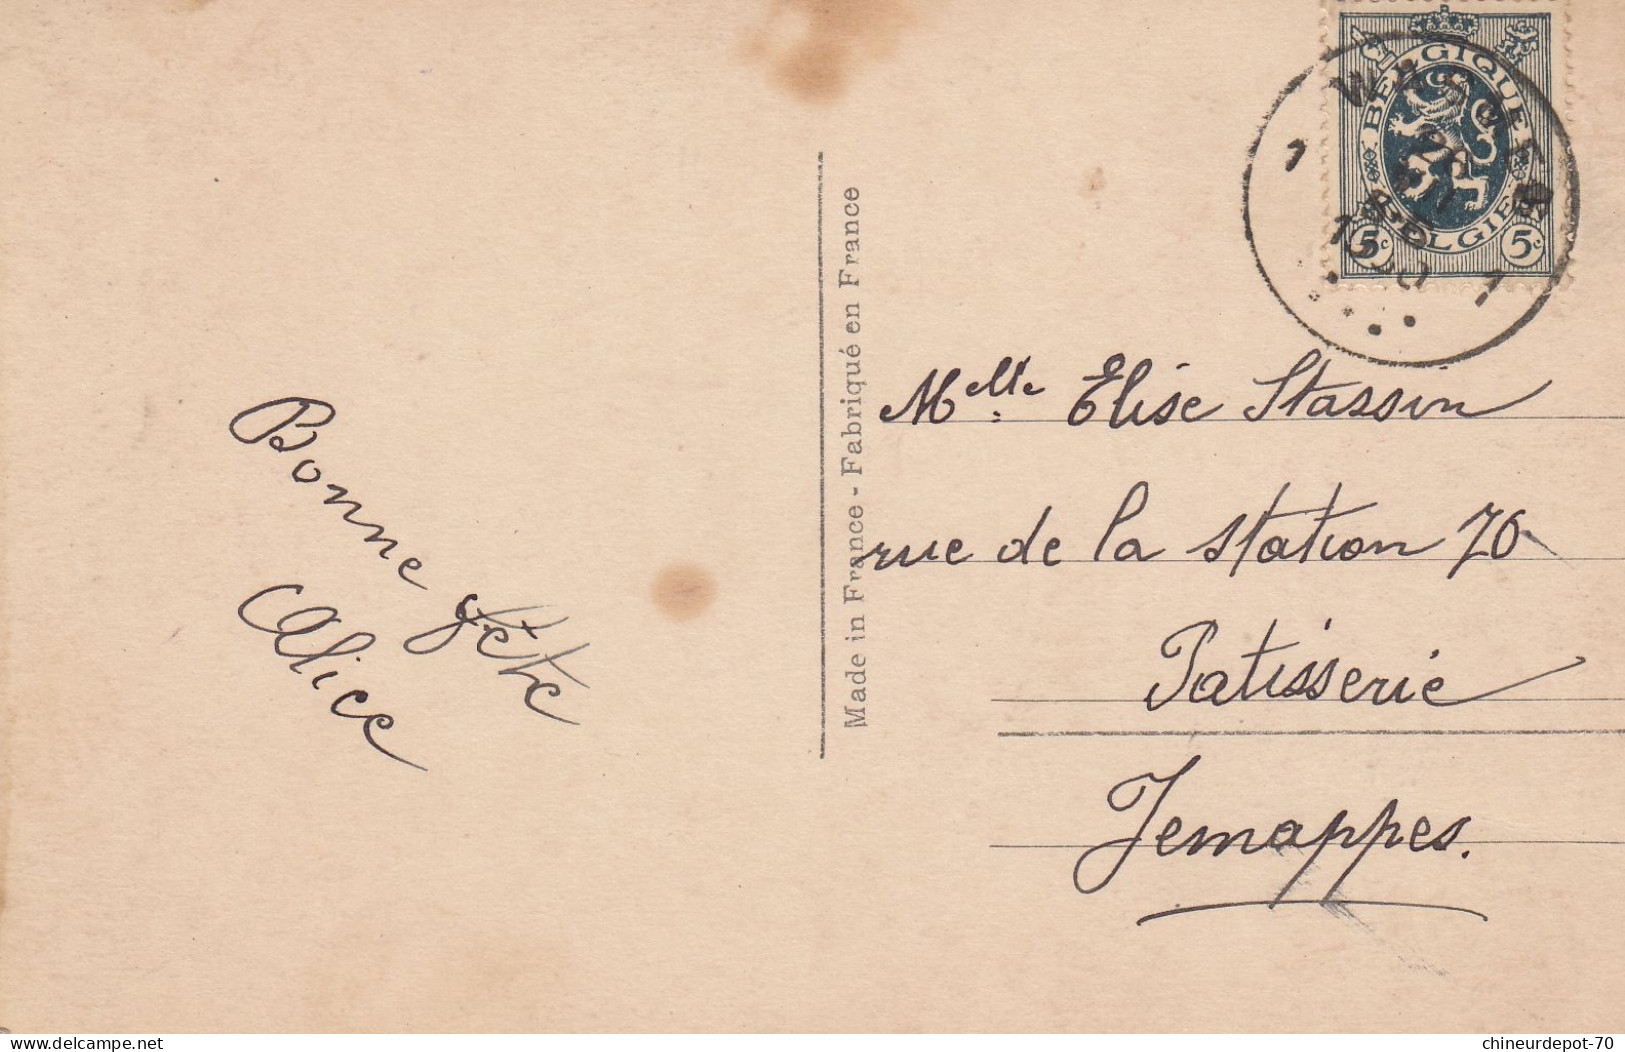 BELGIQUE
BELGIE
5c 5c
1 1
Bonne fête
Alice
Made in France - Fabriqué en France
Melle Elise Stassin
rue de la station 70
Patisserie
Jemappes.
chineurdepot-70